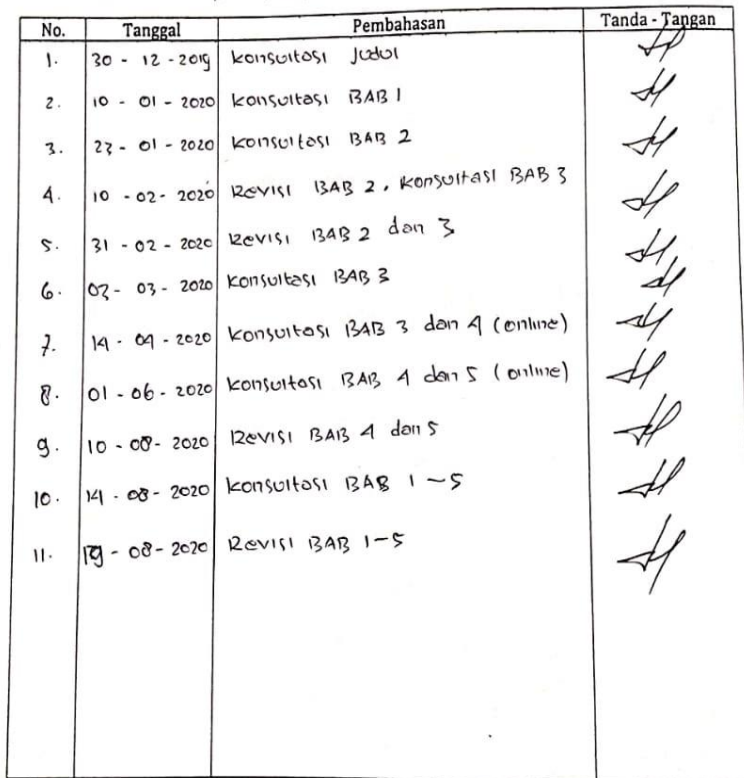 No. Tanggal Pembahasan Tanda - Tangan
1. 30 - 12 - 2019 Konsultasi Judul
2. 10 - 01 - 2020 Konsultasi BAB 1
3. 23 - 01 - 2020 Konsultasi BAB 2
4. 10 - 02 - 2020 Revisi BAB 2, Konsultasi BAB 3
5. 31 - 02 - 2020 Revisi BAB 2 dan 3
6. 03 - 03 - 2020 Konsultasi BAB 3
7. 14 - 04 - 2020 Konsultasi BAB 3 dan 4 (online)
8. 01 - 06 - 2020 Konsultasi BAB 4 dan 5 (online)
9. 10 - 08 - 2020 Revisi BAB 4 dan 5
10. 14 - 08 - 2020 Konsultasi BAB 1 - 5
11. 19 - 08 - 2020 Revisi BAB 1-5